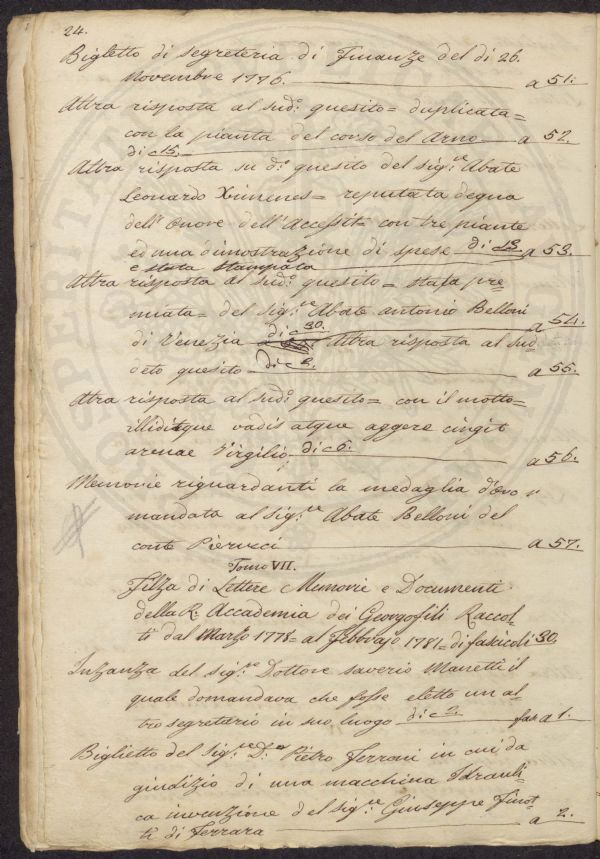 24.
Biglietto di segreteria di Finanze del di 26.
Novembre 1776. a 51.
Altra risposta al sud.º quesito = duplicata =
con la pianta del corso del Arno a 52.
di c 15.
Altra risposta su d.º quesito del sig.re Abate
Leonardo Ximenes = reputata degna
dell' Onore dell' Accessit = con tre piante
ed una dimostrazione di spese di 13 a 53.
e stata stampata
Altra risposta al sud.º quesito = stata pre-
miata = del sig.re Abate Antonio Belloni
di c 30. a 54.
di Venezia Altra risposta al sud
deto quesito di c 2. a 55.
Altra risposta al sud.º quesito = con il motto =
illiditque vadis atque aggere cingit
arenae Virgilio di c 6. a 56.
Memorie riguardanti la medaglia d'oro
mandata al Sig.re Abate Belloni del
conte Pierucci a 57.
Tomo VII.
Filza di Lettere Memorie e Documenti
della R. Accademia dei Georgofili Raccol-
ti dal Marzo 1778 = al Febbrajo 1781 = di fascicoli 30.
Instanza del sig.re Dottore Saverio Manetti il
quale domandava che fosse eletto un al-
tro segretario in suo luogo di c 2. fas a 1.
Biglietto del sig.re D.re Pietro Ferroni in cui da
giudizio di una macchina Idrauli-
ca invenzione del sig.re Giuseppe Finot-
ti di Ferrara a 2.